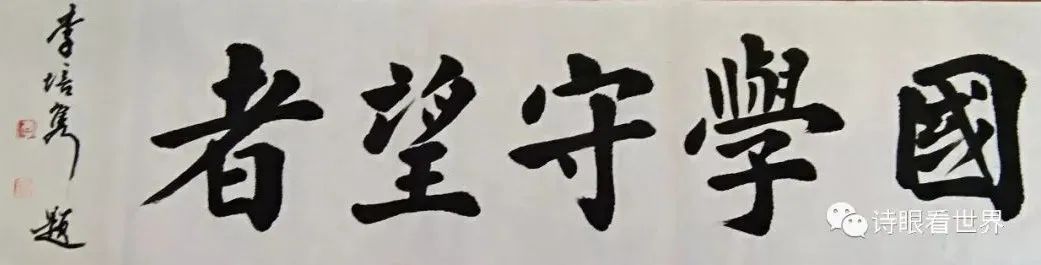 國學守望者
李培隽题
诗眼看世界